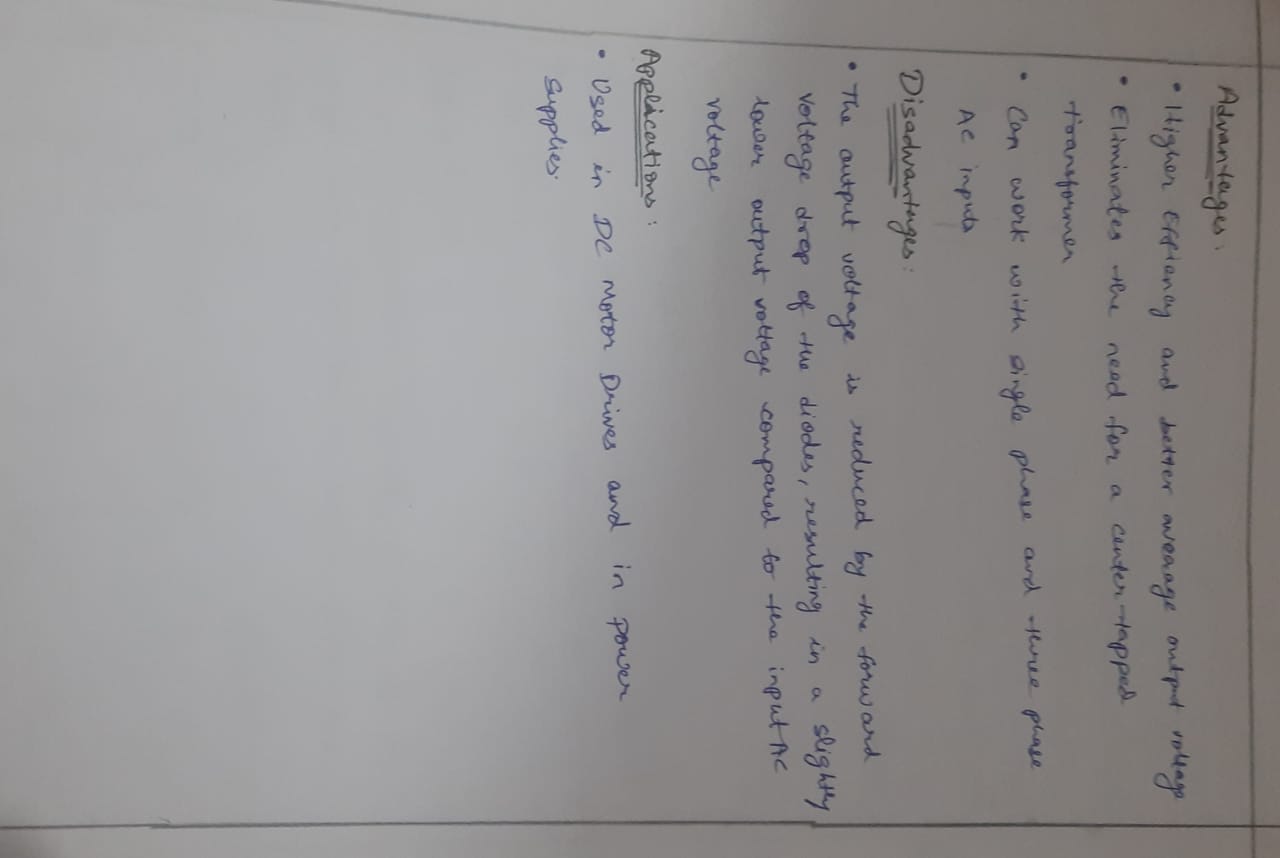 Advantages:
• Higher Effiency and better average output voltage
• Eliminates the need for a center-tapped
transformer
• Can work with single phase and three phase
AC inputs
Disadvantages:
• The output voltage is reduced by the forward
voltage drop of the diodes, resulting in a slightly
lower output voltage compared to the input AC
voltage
Applications:
• Used in DC Motor Drives and in power
supplies.